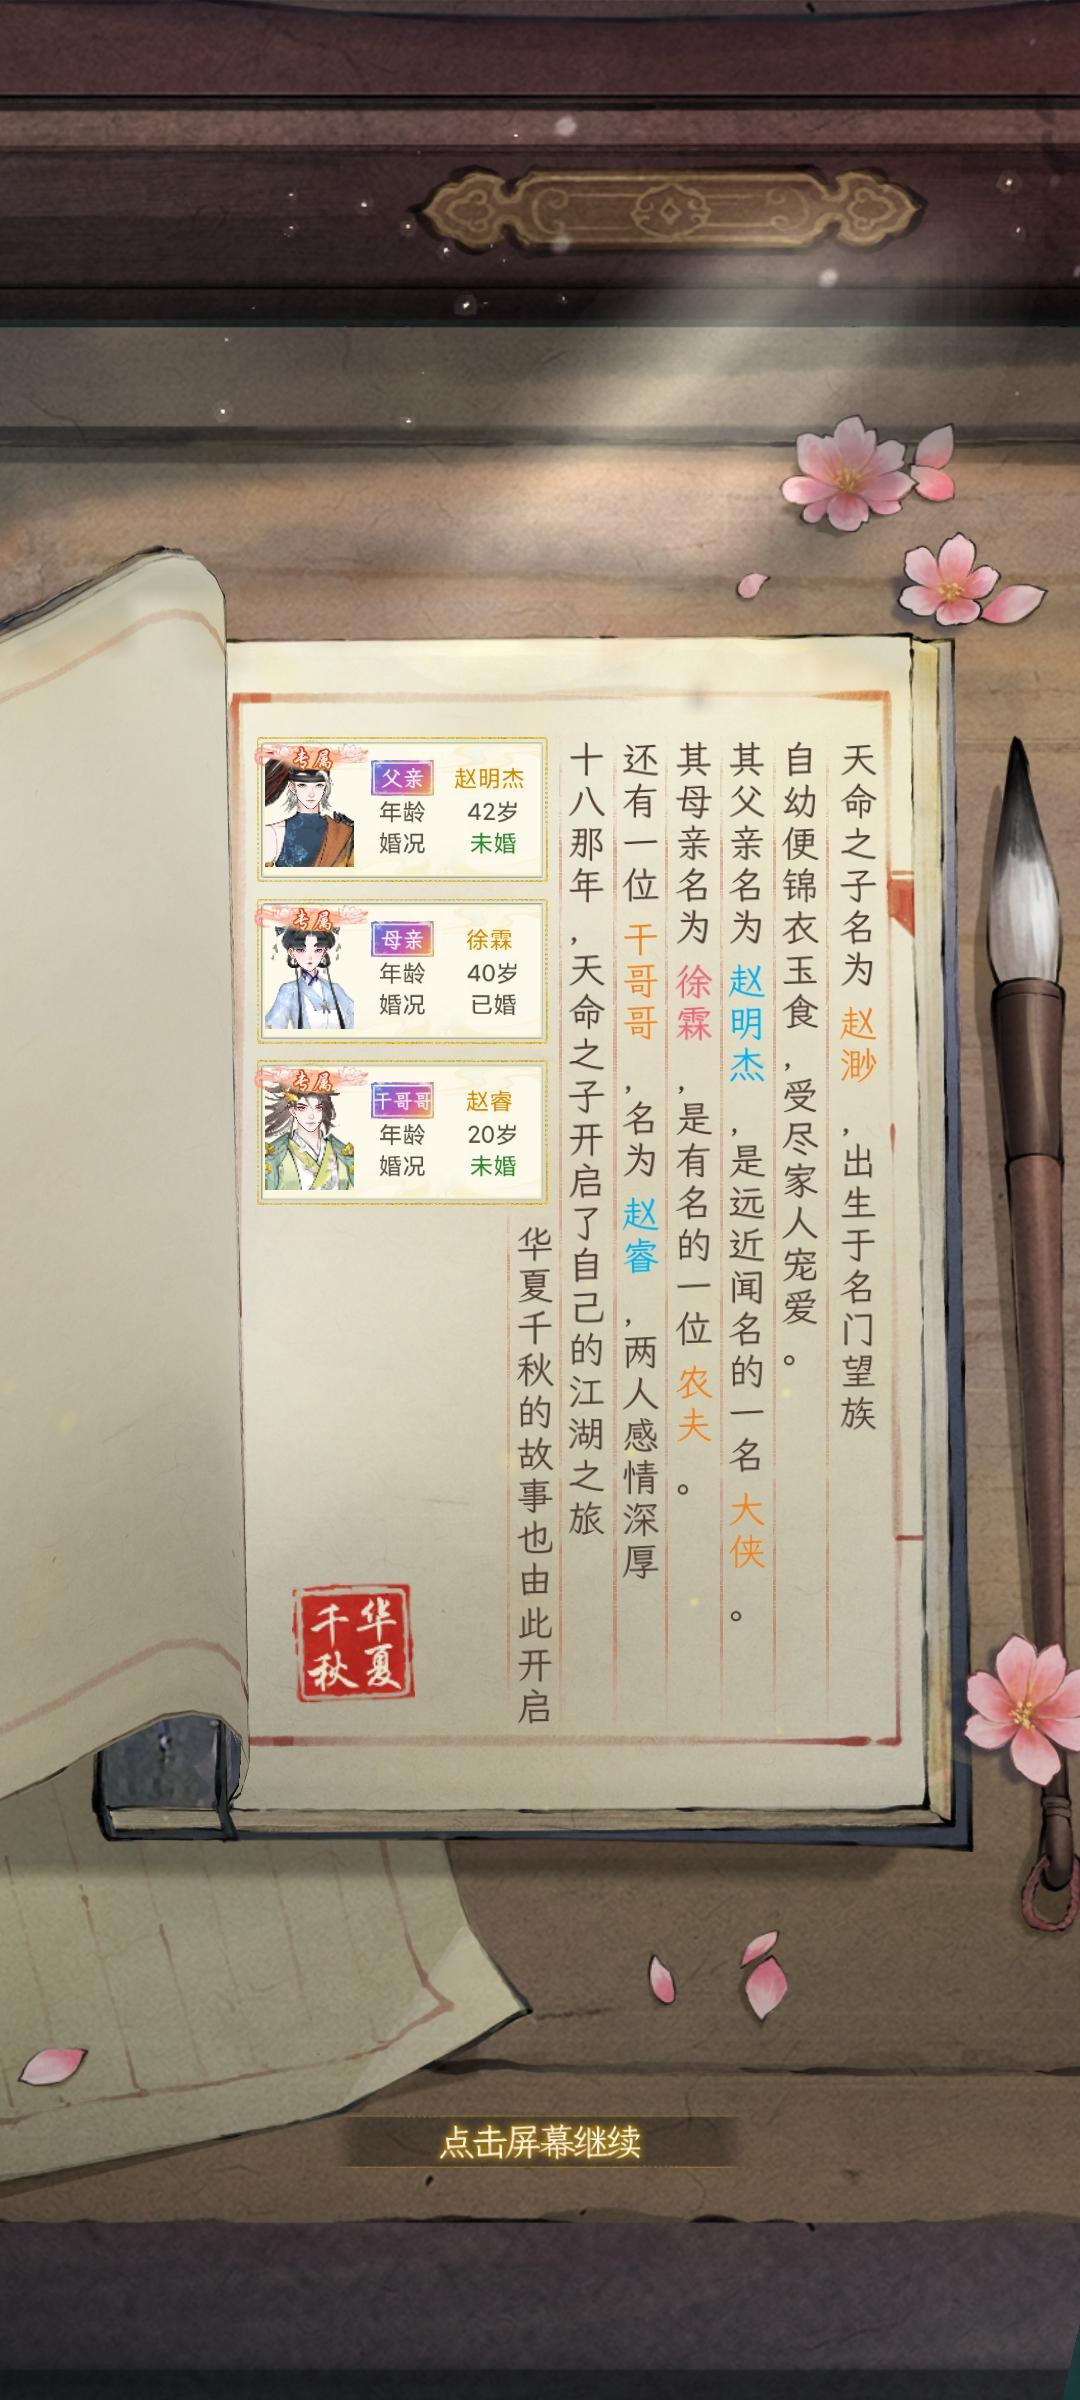 天命之子名为 赵渺 ,出生于名门望族
自幼便锦衣玉食 ,受尽家人宠爱 。
其父亲名为 赵明杰 ,是远近闻名的一名 大侠 。
其母亲名为 徐霖 ,是有名的一位 农夫 。
还有一位 干哥哥 ,名为 赵睿 ,两人感情深厚
十八那年 ,天命之子开启了自己的江湖之旅
华夏千秋的故事也由此开启
专属
父亲 赵明杰
年龄 42岁
婚况 未婚
专属
母亲 徐霖
年龄 40岁
婚况 已婚
专属
干哥哥 赵睿
年龄 20岁
婚况 未婚
华夏
千秋
点击屏幕继续